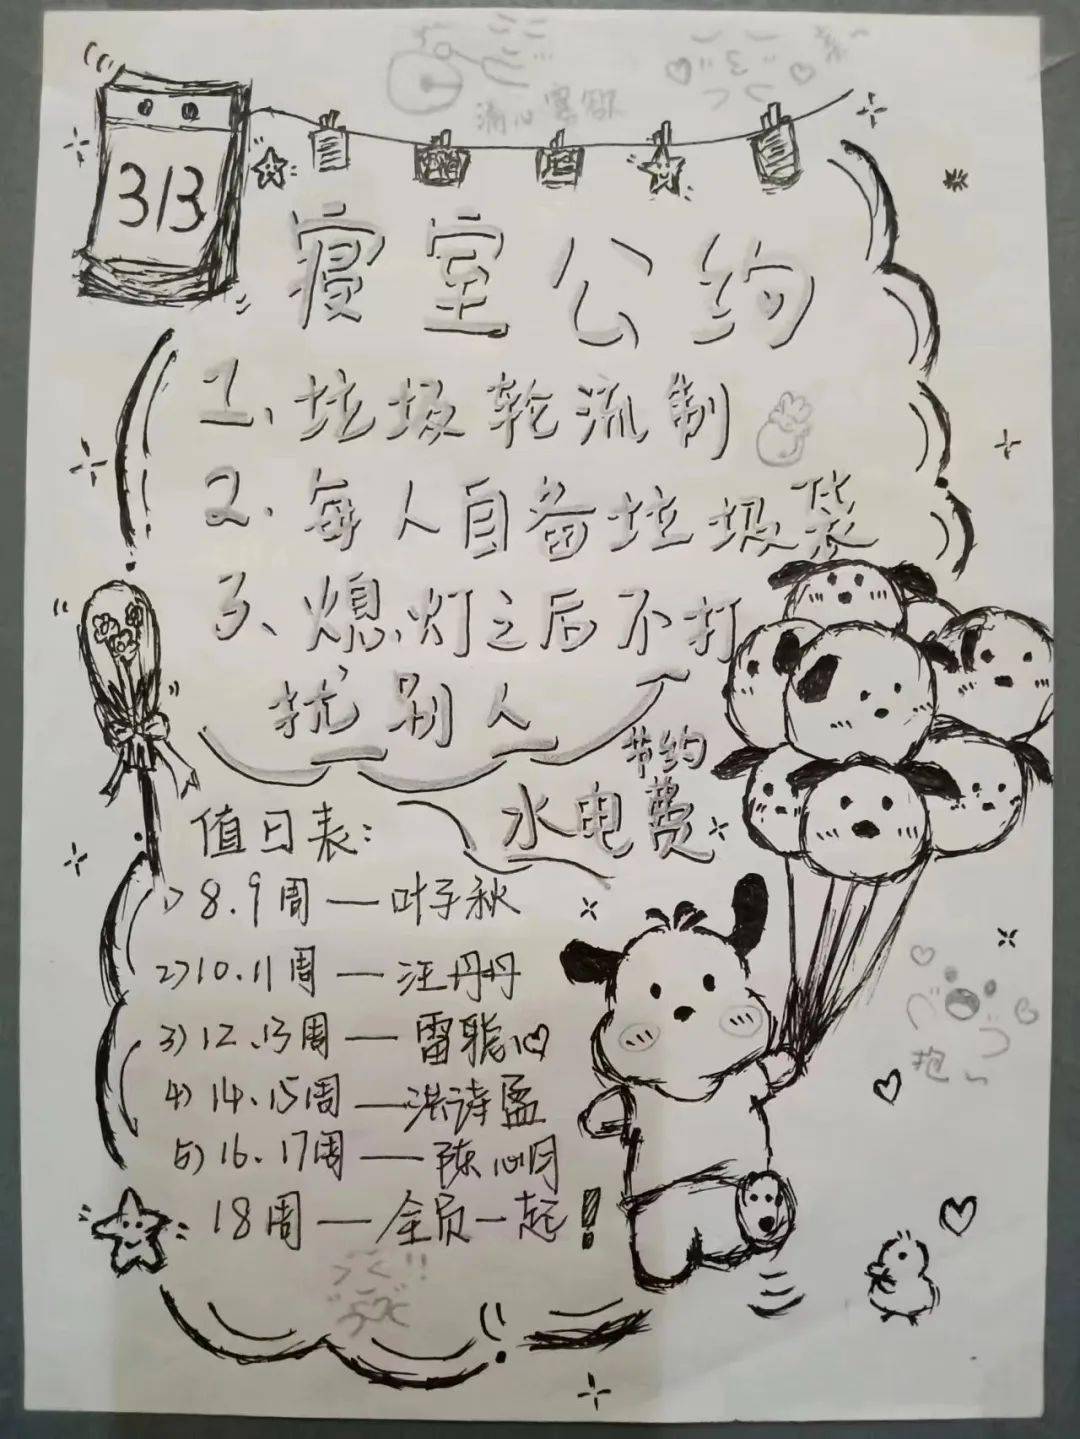 清心寡欲
亲~
313
寝室公约
1、垃圾轮流制
2、每人自备垃圾袋
3、熄灯之后不打
扰别人
节约
水电费
值日表：
1) 8.9周 — 叶子秋
2) 10.11周 — 汪丹丹
3) 12.13周 — 雷聪心
4) 14.15周 — 洪诗孟
5) 16.17周 — 陈心明
18周 — 全员一起！
抱~